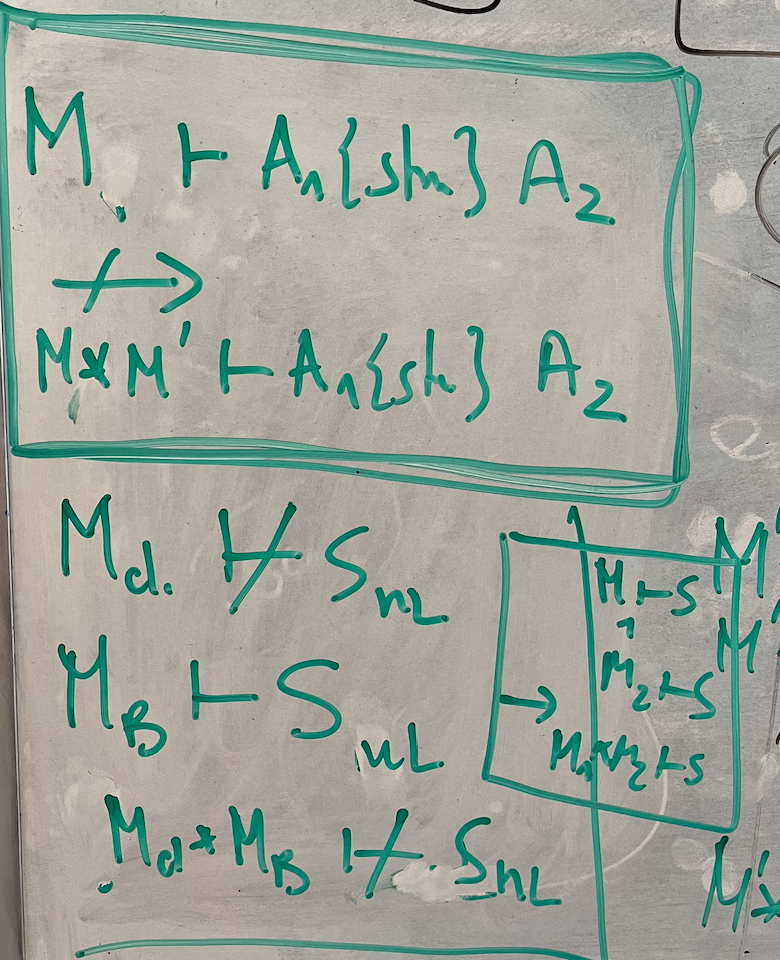 M ⊢ A₁{stm} A₂
↛
M*M' ⊢ A₁{stm} A₂
M_d. ⊬ S_nL
M_B ⊢ S_nL
M_d * M_B ⊬ S_nL
M₁ ⊢ S
M₂ ⊢ S
→
M₁*M₂ ⊢ S
M'
M'
M'*